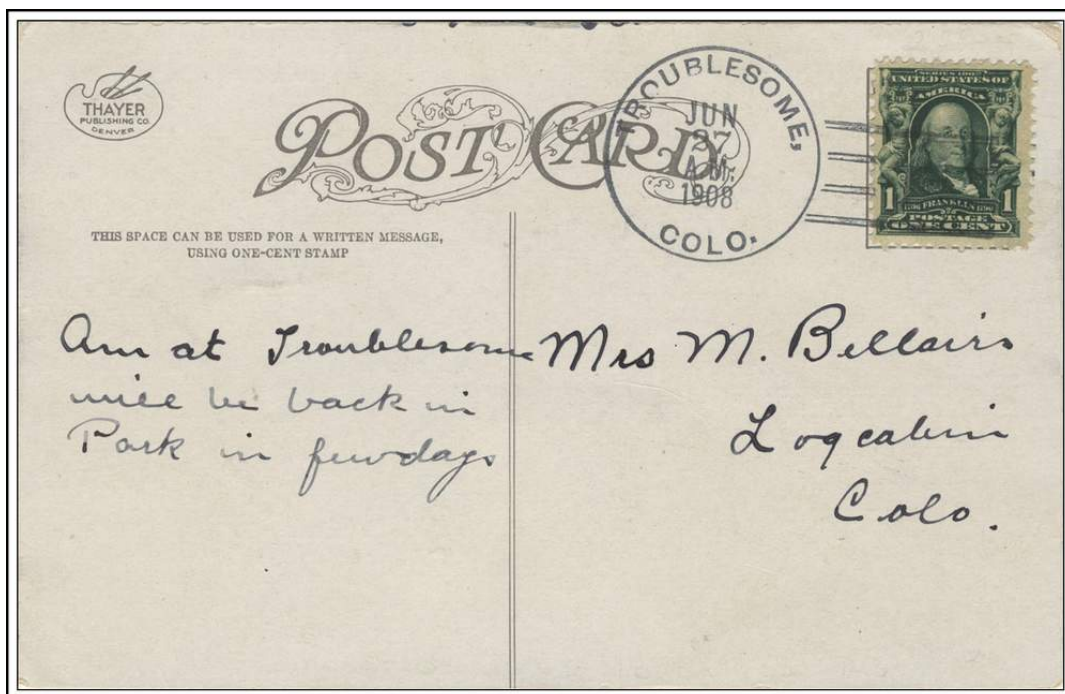 THAYER
PUBLISHING CO.
DENVER
POST CARD
TROUBLESOME,
JUN
27
A.M.
1908
COLO.
SERIES 1902
UNITED STATES OF
AMERICA
1 1
1706 FRANKLIN 1790
POSTAGE
ONE CENT
THIS SPACE CAN BE USED FOR A WRITTEN MESSAGE,
USING ONE-CENT STAMP
Am at Troublesome
will be back in
Park in few days
Mrs M. Bellairs
Logcabin
Colo.